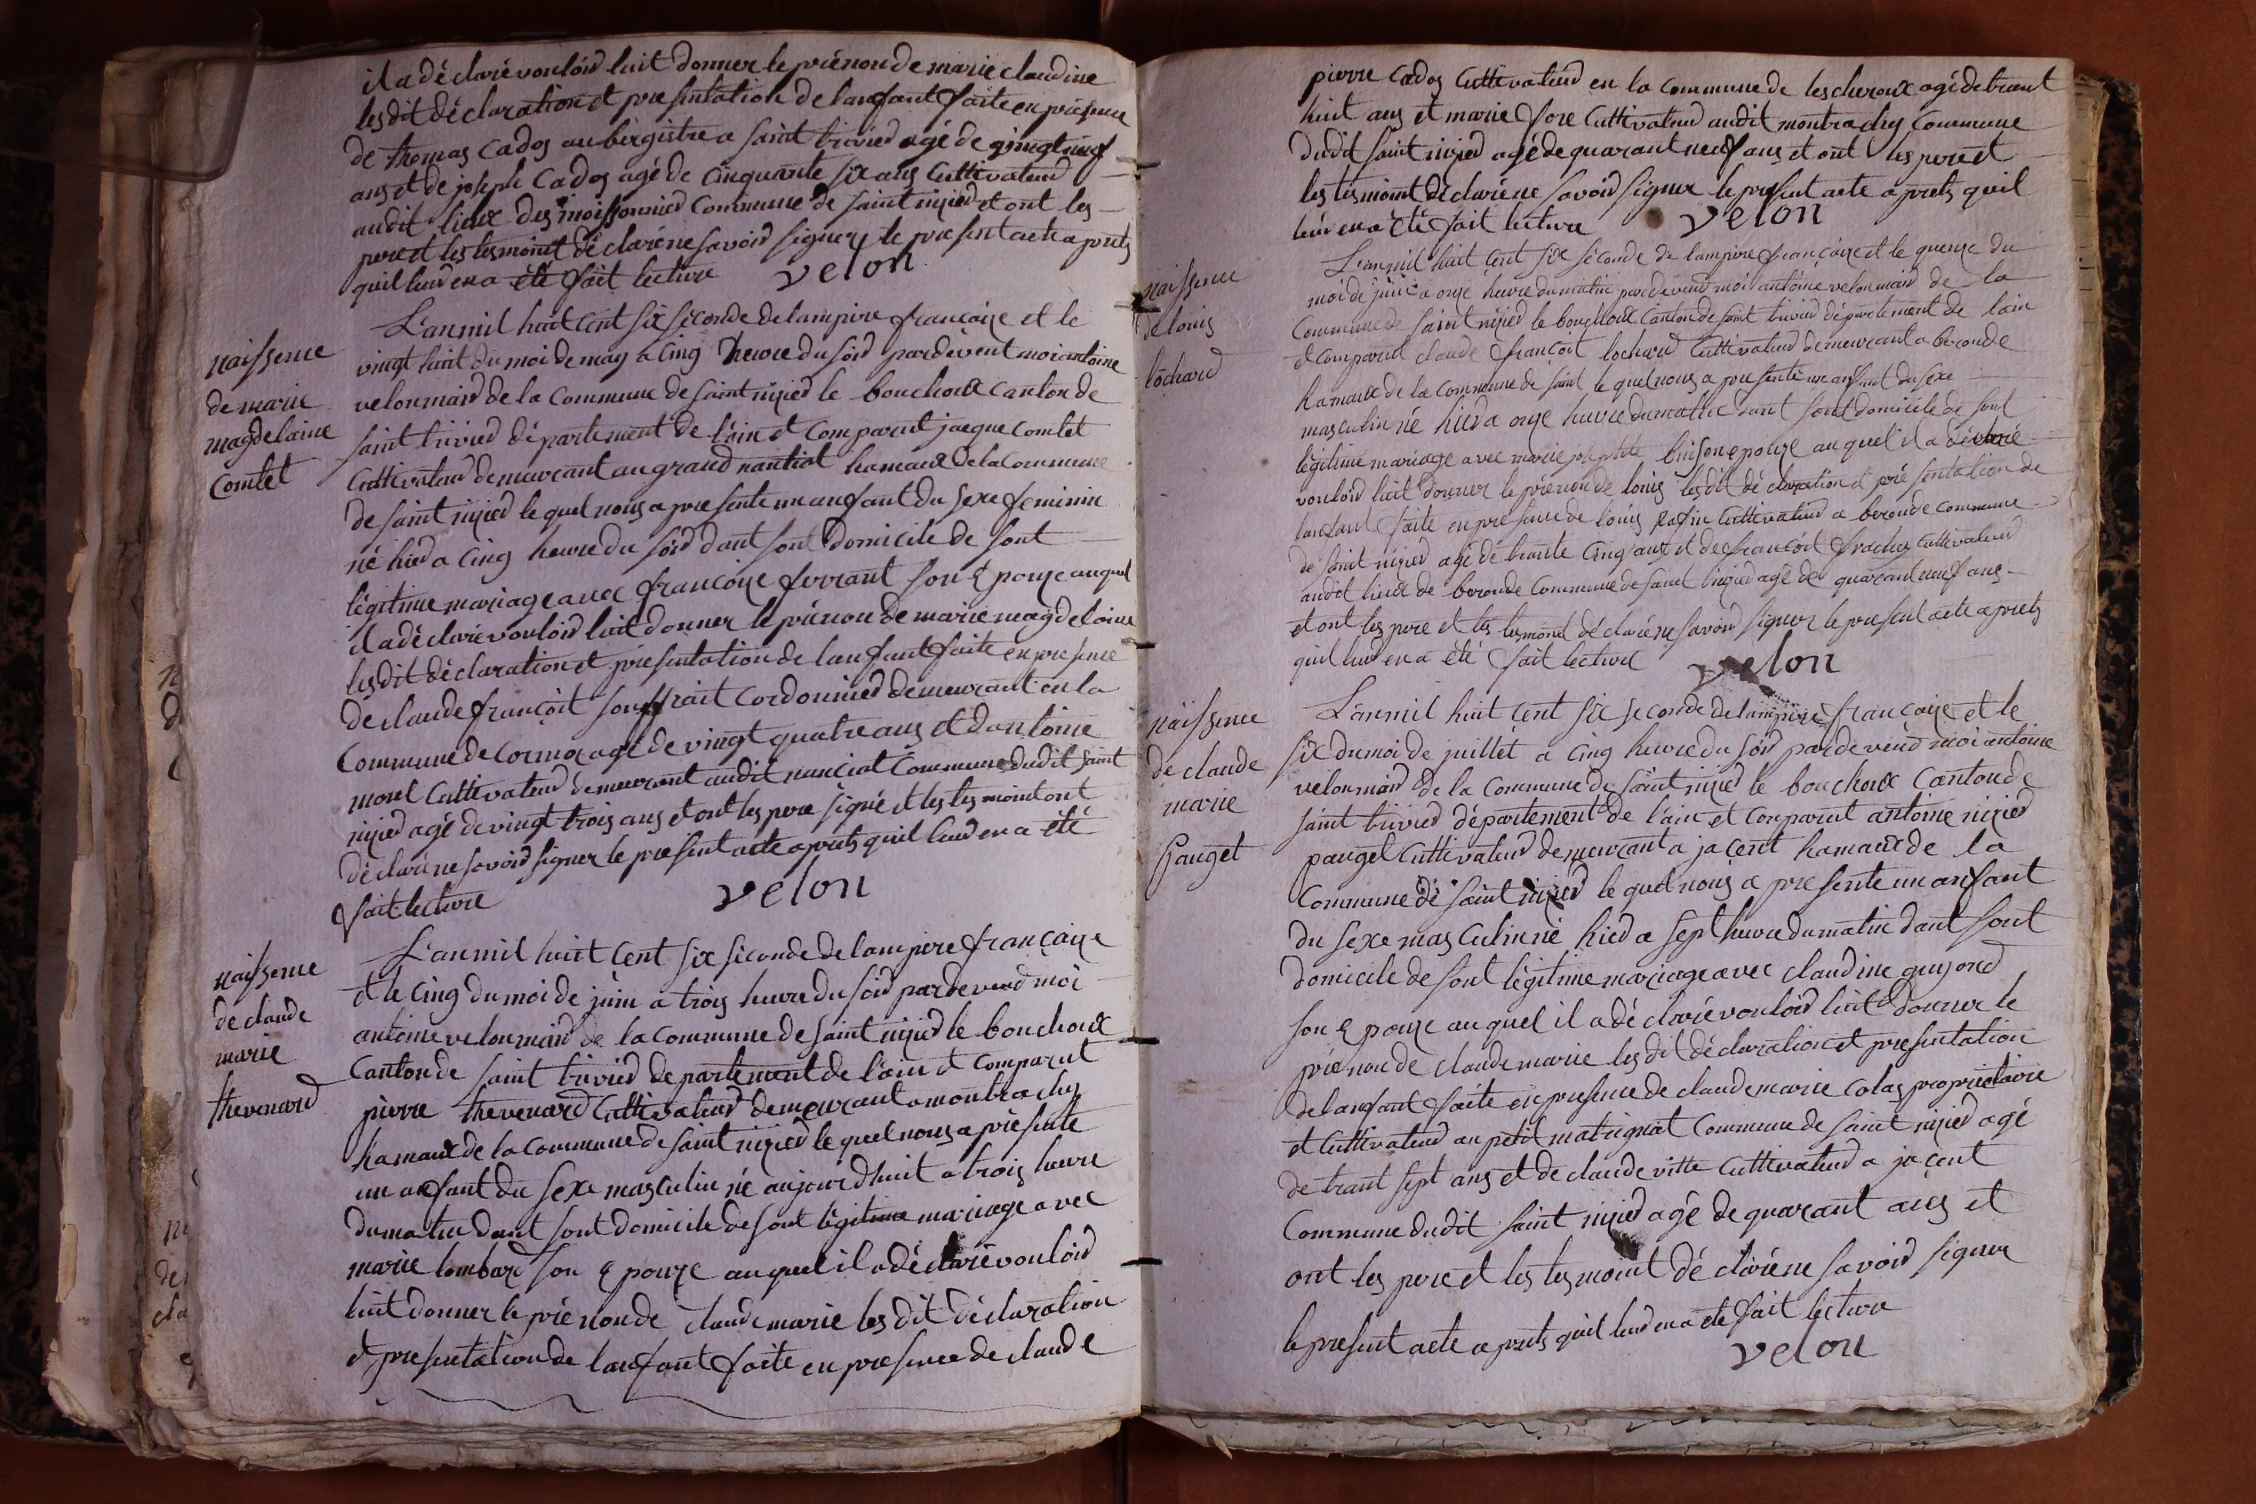 il a dé clavé vouloir luit donner le prénon de marie claudine
les dit déclaration et presentation de lanfant faite en présence
de thomas Cados aubergistre a saint trivied agé de vingt neuf
ans et de joseph Cados agé de Cinquante six ans Cultivateur
audit lieux des moissonnied Commune de saint nizied et ont les
pere et les tesmoint dé claré ne savoir signer le present acte a prets
quil leur en a été fait lecture velon
naissence
de marie
magdelaine
Comtet
L'an mil huit cent six séconde de lampire françaize et le
vingt huit du moi de may a Cinq heure du soir pardevent moi antoine
velon maire de la Commune de saint nizied le bouchoux canton de
saint trivied département de l'ain et Comparut jacque Comtet
Cultivateur demeurant au grand nantiat hamaux de la Commune
de saint nizied le quel nous a presente un anfant du sexe feminin
né hier a Cinq heure du soir dant sont domicile de sont
légitime mariage avec françoize ferrant son épouze auquel
il a dé claré vouloir luit donner le prénon de marie magdelaine
les dit déclaration et présentation de lanfant faite en presence
de claude françoit souffrait Cordonnied demeurant en la
Commune de Cormoz agé de vingt quatre ans et dantoine
morel Cultivateur demeurant audit nanciat Commune dudit saint
nizied agé de vingt trois ans et ont les pere signé et les tesmoint ont
dé claré ne savoir signer le present acte a prets quil leur en a été
fait lecture velon
naissence
de claude
marie
thevenard
L'an mil huit cent six séconde de lampire françaize
et le Cinq du moi de juin a trois heure du soir pardevend moi
antoine velon maire de la Commune de saint nizied le bouchoux
Canton de saint trivied département de l'ain et Comparut
pierre thevenard Cultivateur demeurant a montrachy
hamaux de la Commune de saint nizied le quel nous a présente
un anfant du sexe masculin né aujourdhuit a trois heure
du matin dant sont domicile de sont légitime mariage avec
marie lombar son épouze auquel il a dé claré vouloir
luit donner le prénon de claude marie les dit déclaration
et presentation de lanfant faite en presence de claude
pierre Cados Cultivateur en la Commune de lescheroux agé de trant
huit ans et marie fore Cultivateur audit montrachy Commune
dudit saint nizied agé de quarant neuf ans et ont les pere et
les tesmoint dé claré ne savoir signer le present acte a prets quil
leur en a été fait lecture velon
naissence
de louis
lochard
L'an mil huit cent six séconde de lampire françaize et le quenze du
moi de juin a onze heure du matin pardevend moi antoine velon maire de la
Commune de saint nizied le bouchoux Canton de saint trivied département de l'ain
et Comparut claude françoit lochard Cultivateur demeurant a beronde
hamaux de la Commune de saint le quel nous a presenté un anfant du sexe
masculin né hier a onze heure du matin dant sont domicile de sont
légitime mariage avec marie buison epouze auquel il a déclaré
vouloir luit donner le prénon de louis les dit dé claration et présentation de
lanfant faite en presence de louis Cultivateur a beronde commune
de saint nizied agé de trante Cinq ans et de françoit Cultivateur
audit lieux de beronde Commune de saint nizied agé de quarant neuf ans
et ont les pere et les tesmoint dé claré ne savoir signer le present acte a prets
quil leur en a été fait lecture velon
naissence
de claude
marie
Pauget
L'an mil huit cent six seconde de lampire françaize et le
six du moi de juillet a Cinq heure du soir pardevend moi antoine
velon maire de la Commune de saint nizied le bouchoux Canton de
saint trivied département de l'ain et Comparut antoine nizied
pauget Cultivateur demeurant a jacent hamaux de la
Commune de saint nizied le quel nous a presente un anfant
du sexe masculin né hied a sept heure du matin dant sont
domicile de sont légitime mariage avec claudine guyond
son épouze auquel il a dé claré vouloir luit donner le
prénon de claude marie les dit dé claration et presentation
de lanfant faite en presence de claude marie Colas proprietaire
et Cultivateur au petit matrignat Commune de saint nizied agé
de trant sept ans et de claude vitte Cultivateur a jacent
Commune dudit saint nizied agé de quarant ans et
ont les pere et les tesmoint dé claré ne savoir signer
le present acte a prets quil leur en a été fait lecture
velon